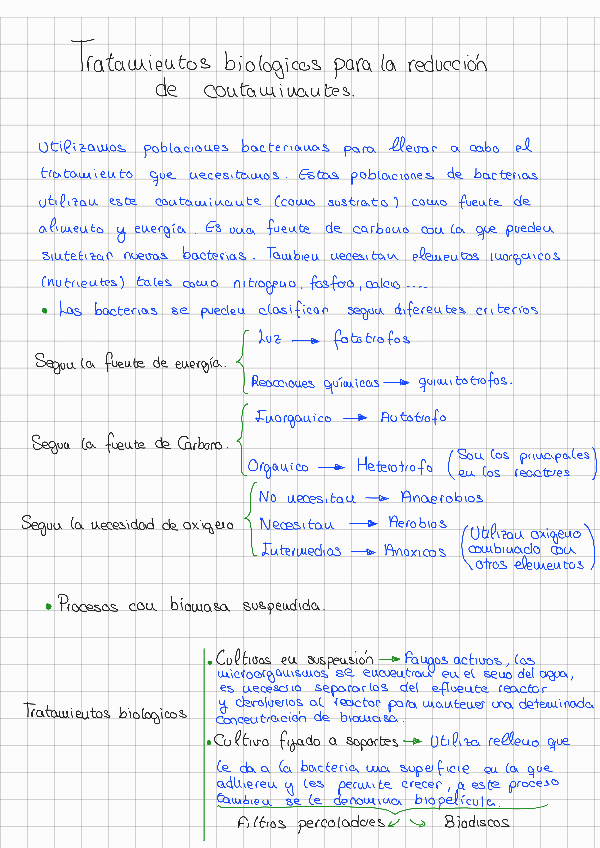 Tratamientos biologicos para la reducción
de contaminantes.
Utilizamos poblaciones bacterianas para llevar a cabo el
tratamiento que necesitamos. Estas poblaciones de bacterias
utilizan este contaminante (como sustrato) como fuente de
alimento y energía. Es una fuente de carbono con la que pueden
sintetizar nuevas bacterias. Tambien necesitan elementos inorganicos
(nutrientes) tales como nitrogeno, fosforo, calcio....
• Las bacterias se pueden clasificar segun diferentes criterios
Segun la fuente de energía.
Luz → fototrofos
Reacciones químicas → quimitotrofos.
Segun la fuente de Carbono.
Inorganico → Autotrofo
Organico → Heterotrofo (Son los principales en los reactores)
Segun la necesidad de oxigeno
No necesitan → Anaerobios
Necesitan → Aerobios
Intermedias → Anoxicos (Utilizan oxigeno combinado con otros elementos)
• Procesos con biomasa suspendida.
Tratamientos biologicos
• Cultivos en suspensión → Fangos activos, los
microorganismos se encuentran en el seno del agua,
es necesario separarlos del efluente reactor
y devolverlos al reactor para mantener una determinada
concentración de biomasa.
• Cultivo fijado a soportes → Utiliza relleno que
le da a la bacteria una superficie en la que
adhieren y les permite crecer, a este proceso
tambien se le denomina biopelícula.
Filtros percoladores ↙ ↘ Biodiscos